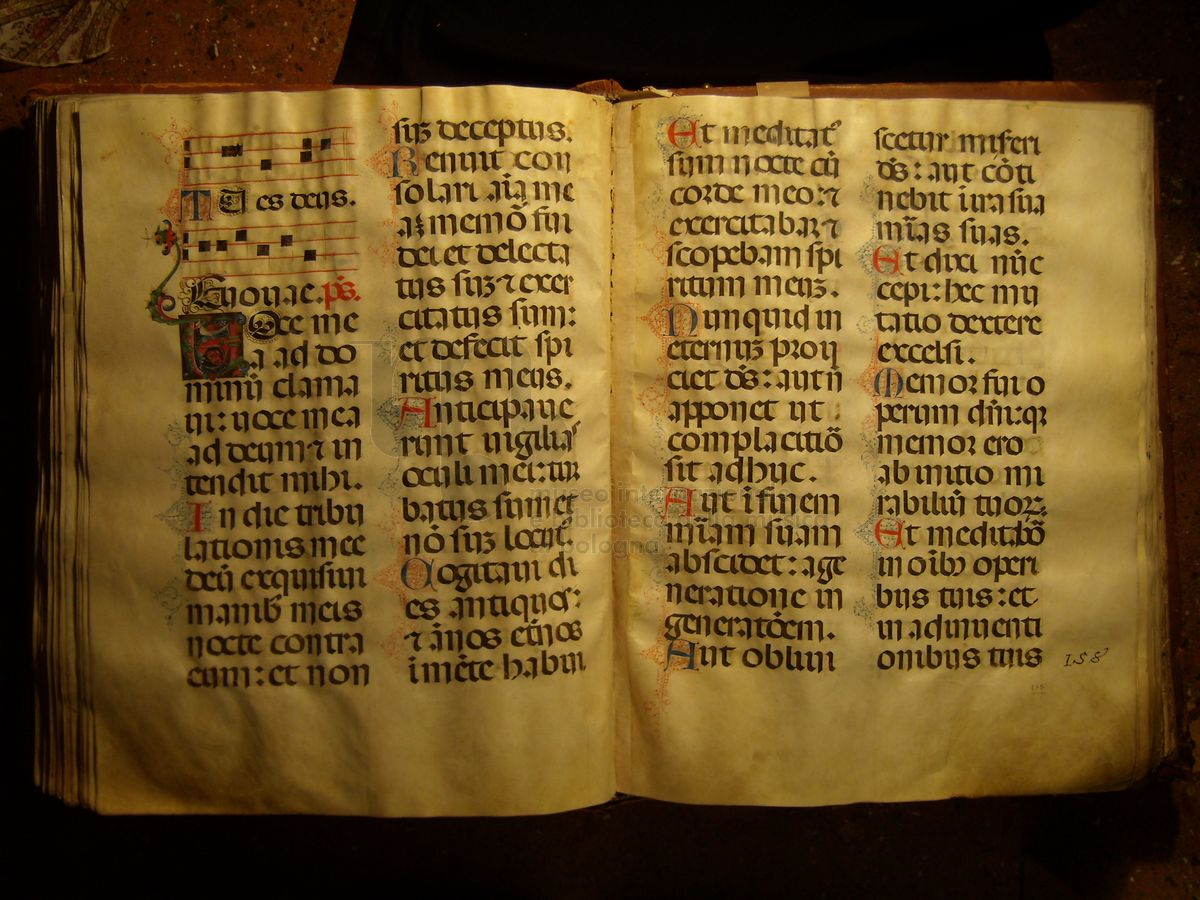 TU es deus.
Euouae. ps.
Voce me
a ad do
minū clama
ui: uoce mea
ad deum ⁊ in
tendit mihi.
In die tribu
lationis mee
deū exquisiui
manibꝰ meis
nocte contra
eum: et non
suꝫ deceptus.
Renuit con
solari aīa me
aꝫ memō fui
dei et delecta
tus suꝫ ⁊ exer
citatus sum:
et defecit spi
ritus meus.
Anticipaue
runt uigilias
oculi mei: tur
batus sum et
nō suꝫ locut᾽.
Cogitaui di
es antiquos:
⁊ ānos etn̄os
ī mēte habui
Et meditat᾽
sum nocte cū
corde meo: ⁊
exercitabar ⁊
scopebam spi
ritum meuꝫ.
Nunquid in
eternuꝫ proii
ciet ds̄: aut nō
apponet ut
complacitiō
sit adhuc.
Aut ī finem
mīam suam
abscidet: a ge
neratione in
generatōem.
Aut obliui
scetur miseri
ds̄: aut cōti
nebit in ira sua
mīas suas.
Et dixi nūc
cepi: hec mu
tatio dextere
excelsi.
Memor fui o
perum dn̄i: qꝛ
memor ero
ab initio mi
rabiliū tuoꝝ.
Et meditabō
in oībꝫ operi
bus tuis: et
in adinuenti
onibus tuis
158
museo internazionale
e biblioteca della musica
di bologna